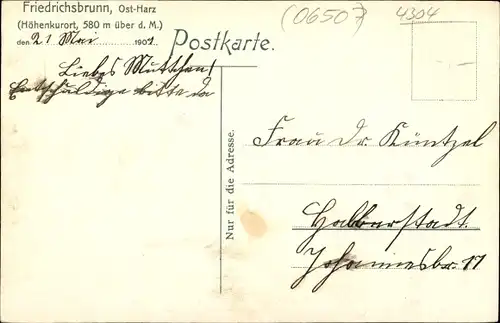 Friedrichsbrunn, Ost-Harz
(Höhenkurort, 580 m über d. M.)
den 21 Mai 1901.
(06507
4304
Postkarte.
Liebes Muttchen!
Entschuldige bitte da
Nur für die Adresse.
Frau Dr. Küntzel
Halberstadt.
Johannesbr. 17